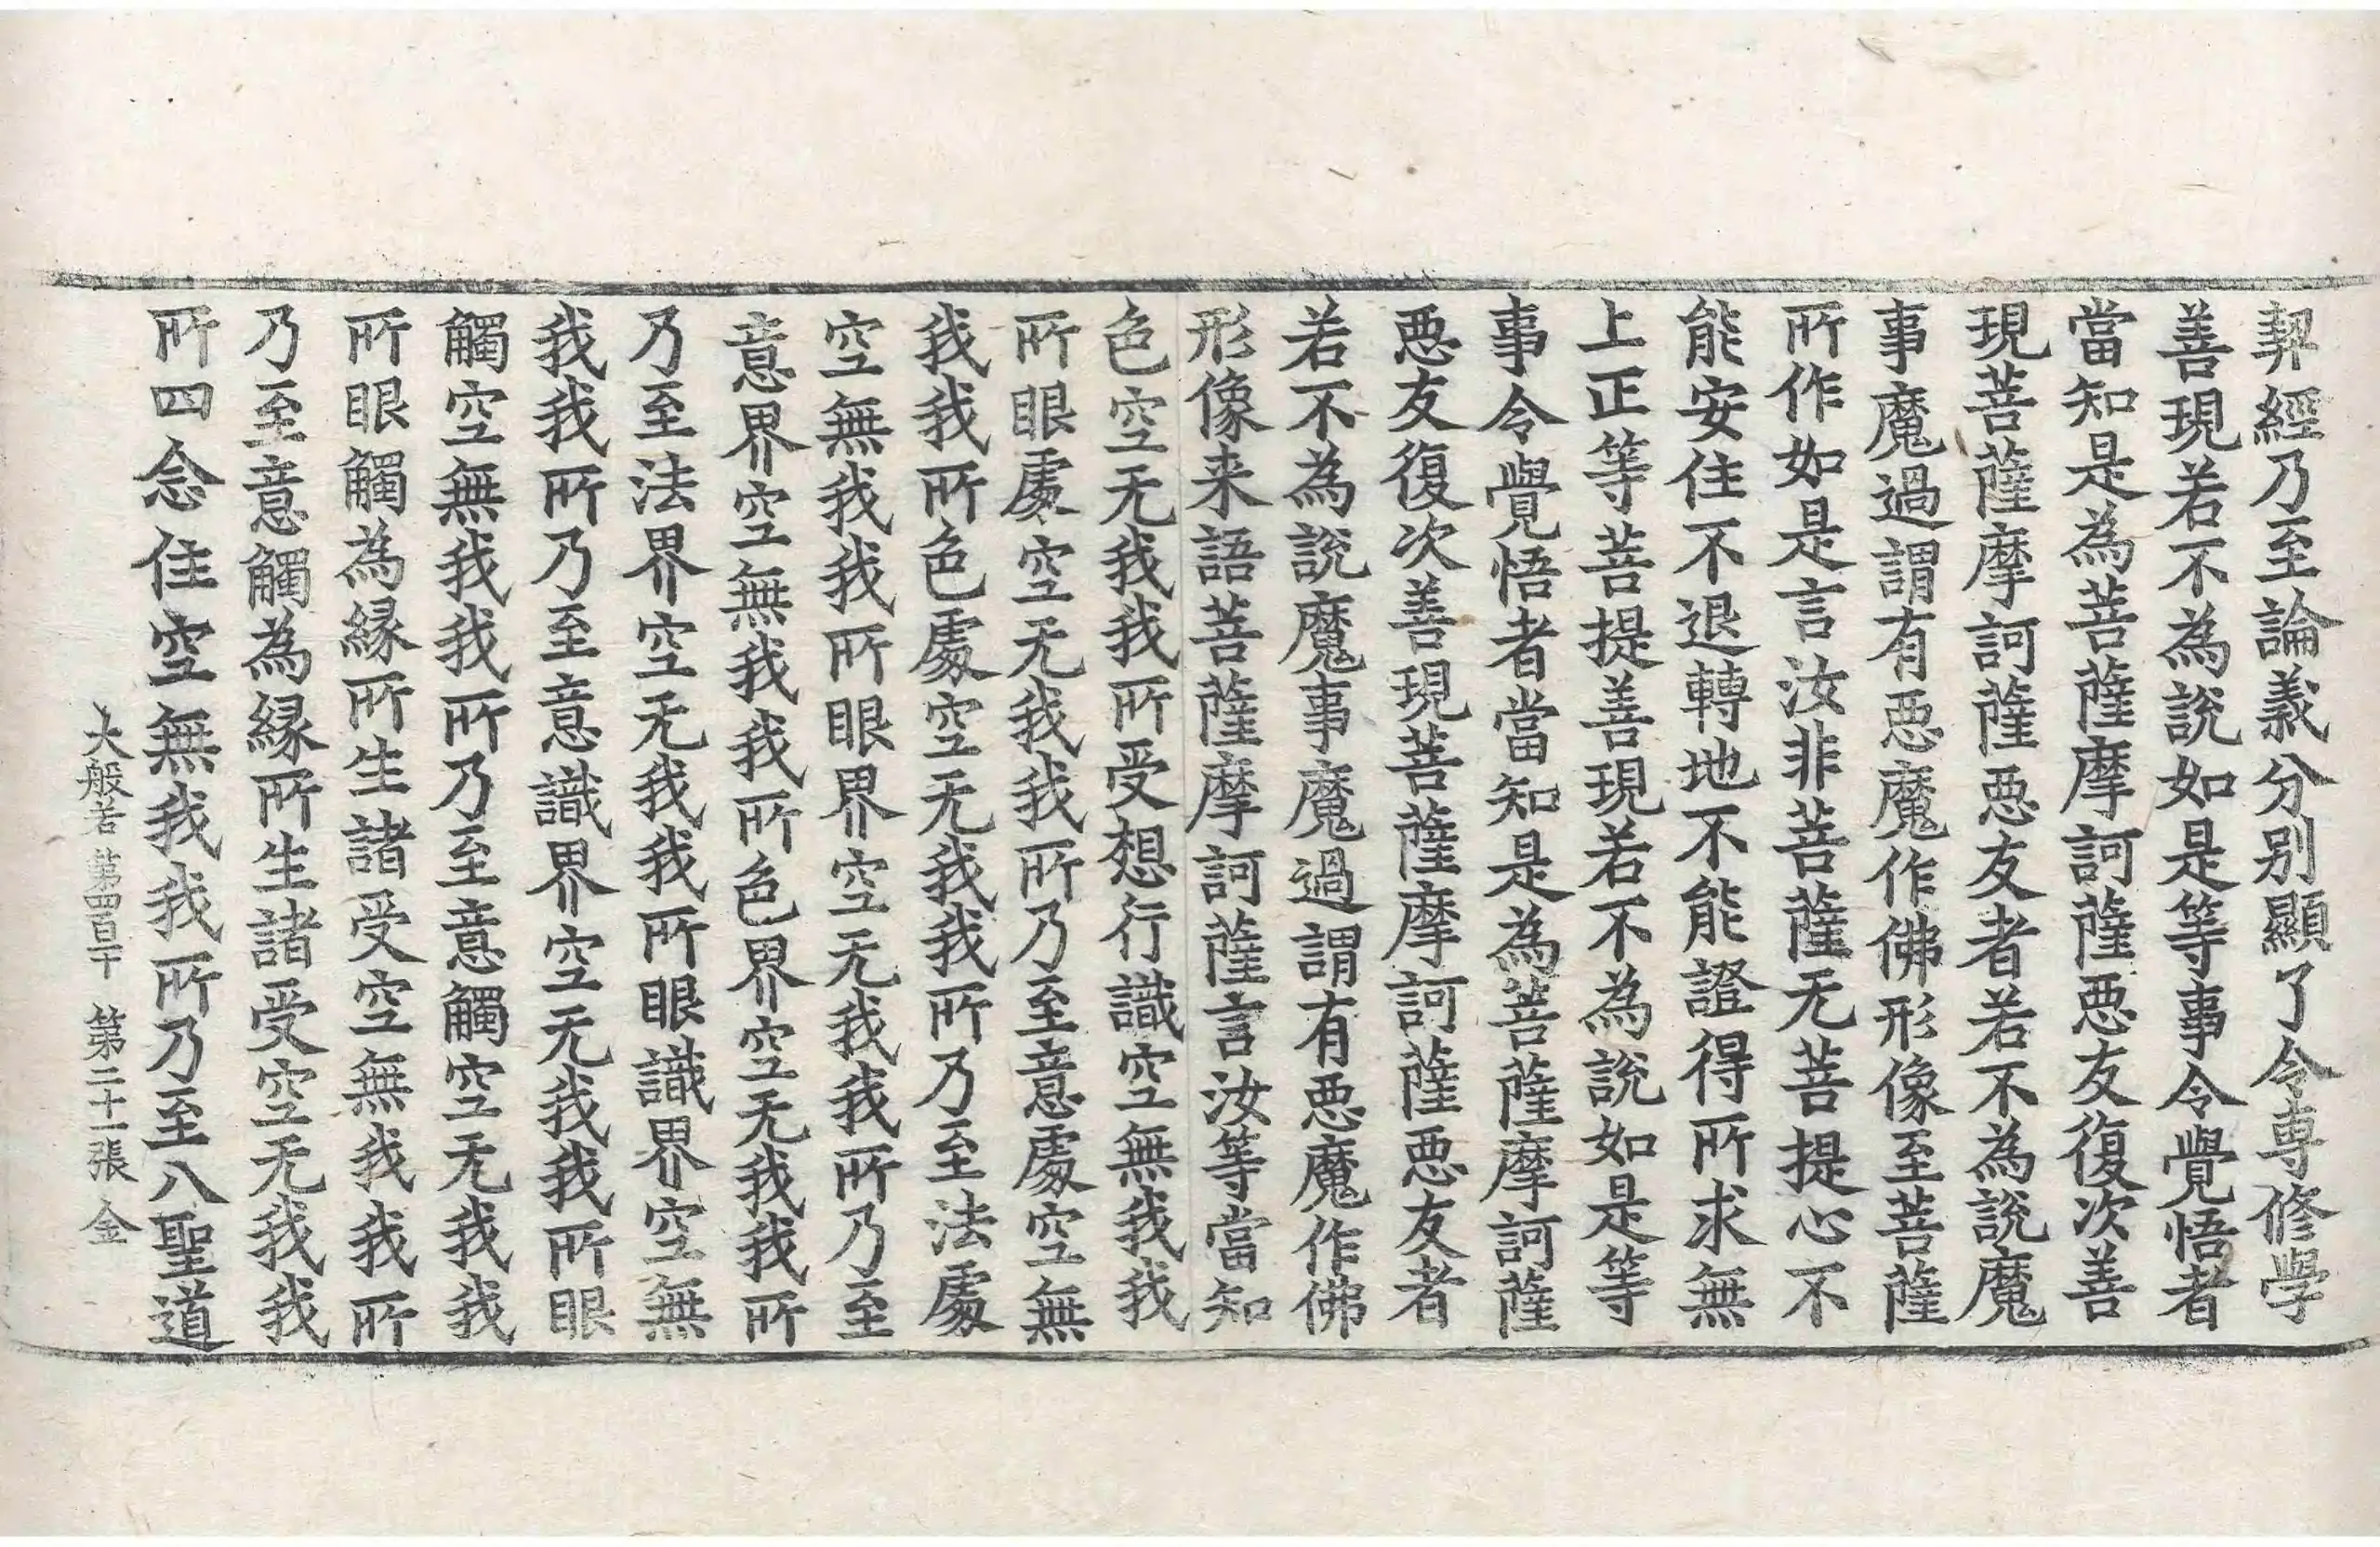 契經乃至論義分別顯了令專修學
善現若不為說如是等事令覺悟者
當知是為菩薩摩訶薩惡友復次善
現菩薩摩訶薩惡友者若不為說魔
事魔過謂有惡魔作佛形像至菩薩
所作如是言汝非菩薩无菩提心不
能安住不退轉地不能證得所求無
上正等菩提善現若不為說如是等
事令覺悟者當知是為菩薩摩訶薩
惡友復次善現菩薩摩訶薩惡友者
若不為說魔事魔過謂有惡魔作佛
形像来語菩薩摩訶薩言汝等當知
色空无我我所受想行識空無我我
所眼處空无我我所乃至意處空無
我我所色處空无我我所乃至法處
空無我我所眼界空无我我所乃至
意界空無我我所色界空无我我所
乃至法界空无我我所眼識界空無
我我所乃至意識界空无我我所眼
觸空無我我所乃至意觸空无我我
所眼觸為緣所生諸受空無我我所
乃至意觸為緣所生諸受空无我我
所四念住空無我我所乃至八聖道
大般若 第四百十 第二十一張 金